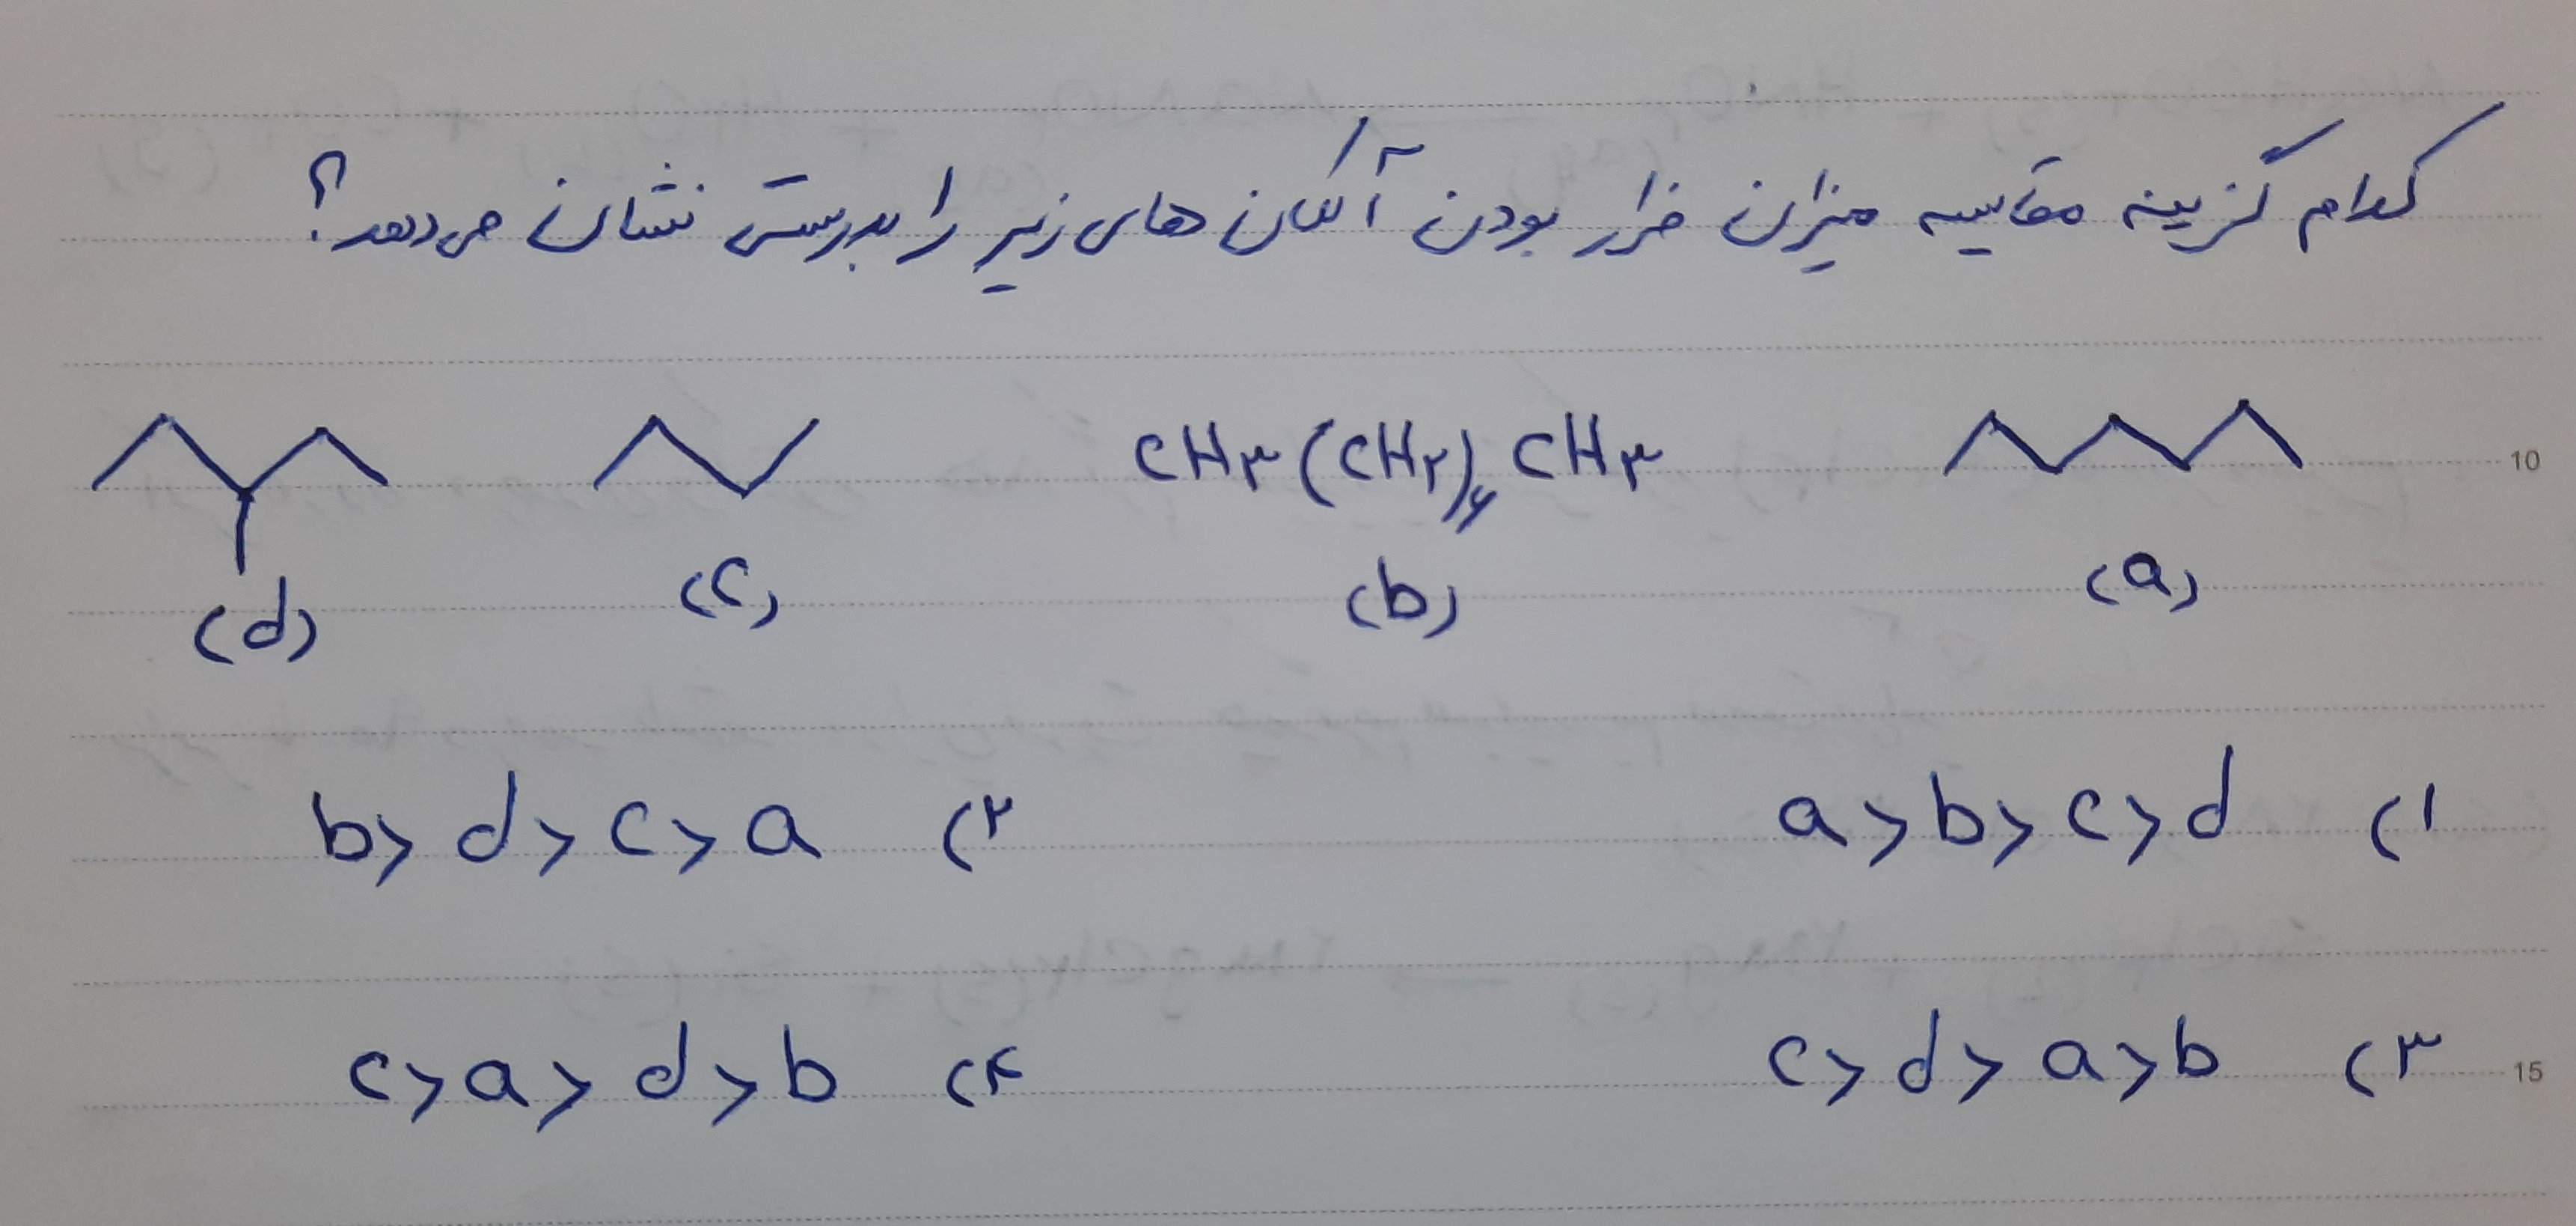 کدام گزینه مقایسه میزان فرار بودن آلکان های زیر را بدرستی نشان می دهد؟
10
CH۳(CH۲)۶CH۳
(a) (b) (c) (d)
۱) a>b>c>d ۲) b>d>c>a
۳) c>d>a>b ۴) c>a>d>b
15